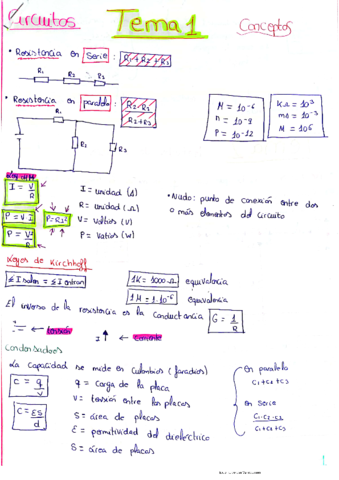 Circuitos Tema 1 Conceptos
• Resistencia en serie : R1 + R2 + R3
R1 R2 R3
• Resistencia en paralelo : R2 · R3
R2 + R3
R1
R2 R3
M = 10-6
n = 10-9
P = 10-12
KΩ = 10³
mΩ = 10-3
M = 10⁶
Ley OHM
I = V/R
P = V·I
P = R·I²
P = V²/R
I = unidad (A)
R = unidad (Ω)
V = Voltios (V)
P = Vatios (W)
• Nudo: punto de conexión entre dos
o más elementos del circuito
Leyes de Kirchhoff
≤ I salen = ≤ I entran
1K = 1000 Ω equivalencia
1M = 1·10-6 equivalencia
El inverso de la resistencia es la Conductancia G = 1/R
← tensión I ↑ ← corriente
Condensadores
La Capacidad se mide en Culombios (faradios)
C = q/V
C = ES/d
q = carga de la placa
V = tensión entre las placas
S = área de placas
E = permitividad del dieléctrico
S = área de placas
en paralelo
C1 + C2 + C3
en serie
C1·C2·C3
C1 + C2 + C3
1